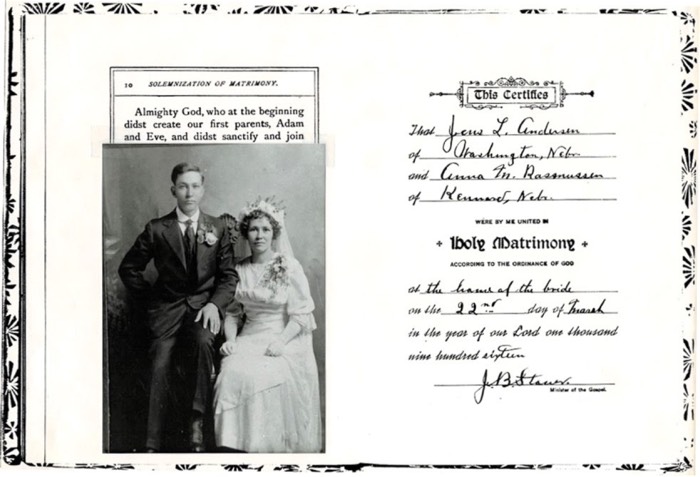 10 SOLEMNIZATION OF MATRIMONY.
Almighty God, who at the beginning
didst create our first parents, Adam
and Eve, and didst sanctify and join
This Certifies
That Jens L. Andersen
of Washington, Nebr.
and Anna M. Rasmussen
of Kennard, Nebr.
WERE BY ME UNITED IN
Holy Matrimony
ACCORDING TO THE ORDINANCE OF GOD
at the home of the bride
on the 22nd day of March
in the year of our Lord one thousand
nine hundred sixteen
J. B.
Minister of the Gospel.